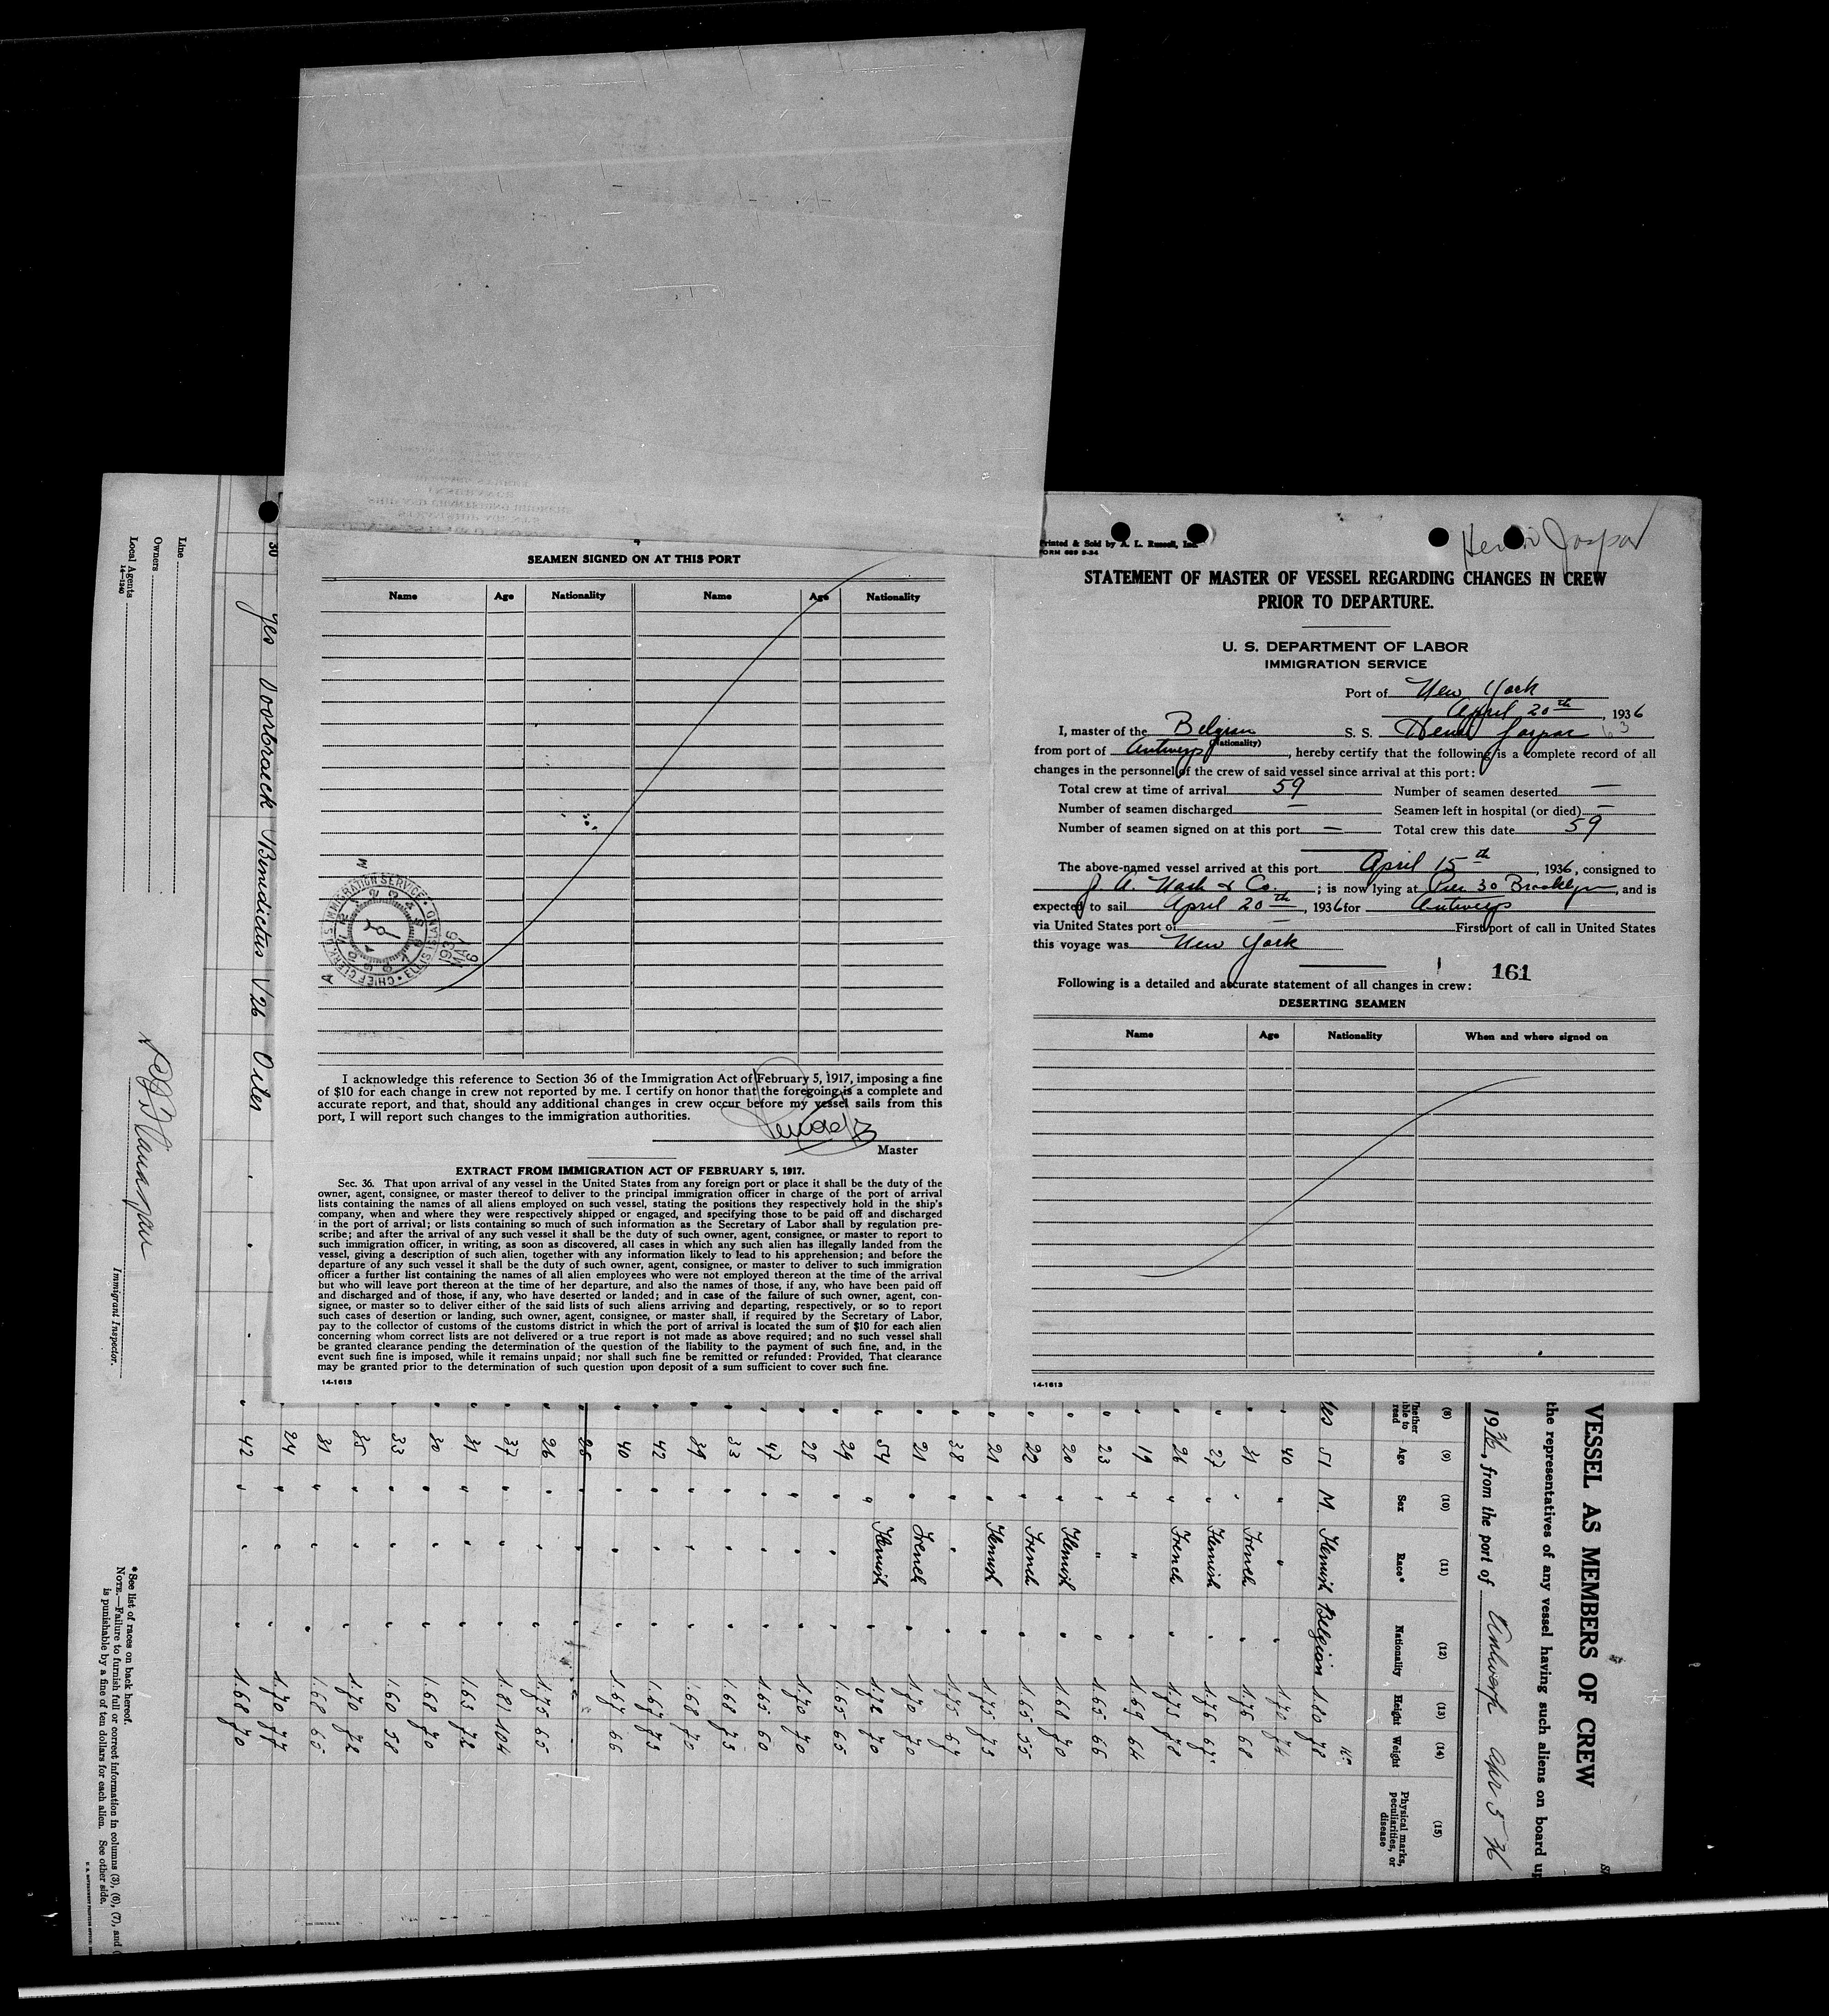 SEAMEN SIGNED ON AT THIS PORT
Name Age Nationality Name Age Nationality
CHIEF CLERK U.S. IMMIGRATION SERVICE ELLIS ISLAND
1936 MAY 6
I acknowledge this reference to Section 36 of the Immigration Act of February 5, 1917, imposing a fine
of $10 for each change in crew not reported by me. I certify on honor that the foregoing is a complete and
accurate report, and that, should any additional changes in crew occur before my vessel sails from this
port, I will report such changes to the immigration authorities.
Master
EXTRACT FROM IMMIGRATION ACT OF FEBRUARY 5, 1917.
Sec. 36. That upon arrival of any vessel in the United States from any foreign port or place it shall be the duty of the
owner, agent, consignee, or master thereof to deliver to the principal immigration officer in charge of the port of arrival
lists containing the names of all aliens employed on such vessel, stating the positions they respectively hold in the ship's
company, when and where they were respectively shipped or engaged, and specifying those to be paid off and discharged
in the port of arrival; or lists containing so much of such information as the Secretary of Labor shall by regulation pre-
scribe; and after the arrival of any such vessel it shall be the duty of such owner, agent, consignee, or master to report to
such immigration officer, in writing, as soon as discovered, all cases in which any such alien has illegally landed from the
vessel, giving a description of such alien, together with any information likely to lead to his apprehension; and before the
departure of any such vessel it shall be the duty of such owner, agent, consignee, or master to deliver to such immigration
officer a further list containing the names of all alien employees who were not employed thereon at the time of the arrival
but who will leave port thereon at the time of her departure, and also the names of those, if any, who have been paid off
and discharged and of those, if any, who have deserted or landed; and in case of the failure of such owner, agent, con-
signee, or master so to deliver either of the said lists of such aliens arriving and departing, respectively, or so to report
such cases of desertion or landing, such owner, agent, consignee, or master shall, if required by the Secretary of Labor,
pay to the collector of customs of the customs district in which the port of arrival is located the sum of $10 for each alien
concerning whom correct lists are not delivered or a true report is not made as above required; and no such vessel shall
be granted clearance pending the determination of the question of the liability to the payment of such fine, and, in the
event such fine is imposed, while it remains unpaid; nor shall such fine be remitted or refunded: Provided, That clearance
may be granted prior to the determination of such question upon deposit of a sum sufficient to cover such fine.
14-1613
Henri Jaspar
Printed & Sold by A. L. Russell, Inc.
FORM 689 9-34
STATEMENT OF MASTER OF VESSEL REGARDING CHANGES IN CREW
PRIOR TO DEPARTURE.
U. S. DEPARTMENT OF LABOR
IMMIGRATION SERVICE
Port of New York
April 20th, 1936
I, master of the Belgian S. S. Henri Jaspar 63
(Nationality)
from port of Antwerp, hereby certify that the following is a complete record of all
changes in the personnel of the crew of said vessel since arrival at this port:
Total crew at time of arrival 59 Number of seamen deserted —
Number of seamen discharged — Seamen left in hospital (or died) —
Number of seamen signed on at this port — Total crew this date 59
The above-named vessel arrived at this port April 15th, 1936, consigned to
J. A. Nash & Co. ; is now lying at Pier 30 Brooklyn, and is
expected to sail April 20th, 1936 for Antwerp
via United States port of — First port of call in United States
this voyage was New York
161
Following is a detailed and accurate statement of all changes in crew:
DESERTING SEAMEN
Name Age Nationality When and where signed on
14-1613
VESSEL AS MEMBERS OF CREW
the representatives of any vessel having such aliens on board
1936, from the port of Antwerp Apr 5 36
(8) (9) (10) (11) (12) (13) (14) (15)
Whether able to read Age Sex Race* Nationality Height Weight Physical marks, peculiarities, or disease
yes 51 M Flemish Belgian 1.80 78
40 " " " 1.70 74
31 " French " 1.76 68
27 " Flemish " 1.76 67
26 " French " 1.75 78
19 " " " 1.69 64
23 " " " 1.65 66
20 " Flemish " 1.68 70
22 " French " 1.65 55
21 " Flemish " 1.75 73
38 " " " 1.75 67
21 " French " 1.70 70
54 " Flemish " 1.72 70
29 " " " 1.65 65
28 " " " 1.70 70
47 " " " 1.65 60
33 " " " 1.68 73
39 " " " 1.68 70
42 " " " 1.67 73
40 " " " 1.67 66
26 " " " 1.75 65
37 " " " 1.81 104
31 " " " 1.63 72
30 " " " 1.68 70
33 " " " 1.60 58
35 " " " 1.70 72
31 " " " 1.68 65
24 " " " 1.70 77
42 " " " 1.68 70
30 yes Benedictus 26 Oiler
Line
Owners
Local Agents
14-1240
Immigrant Inspector.
*See list of races on back hereof.
NOTE.—Failure to furnish full or correct information in columns (3), (6), (7), and (
is punishable by a fine of ten dollars for each alien. See other side.